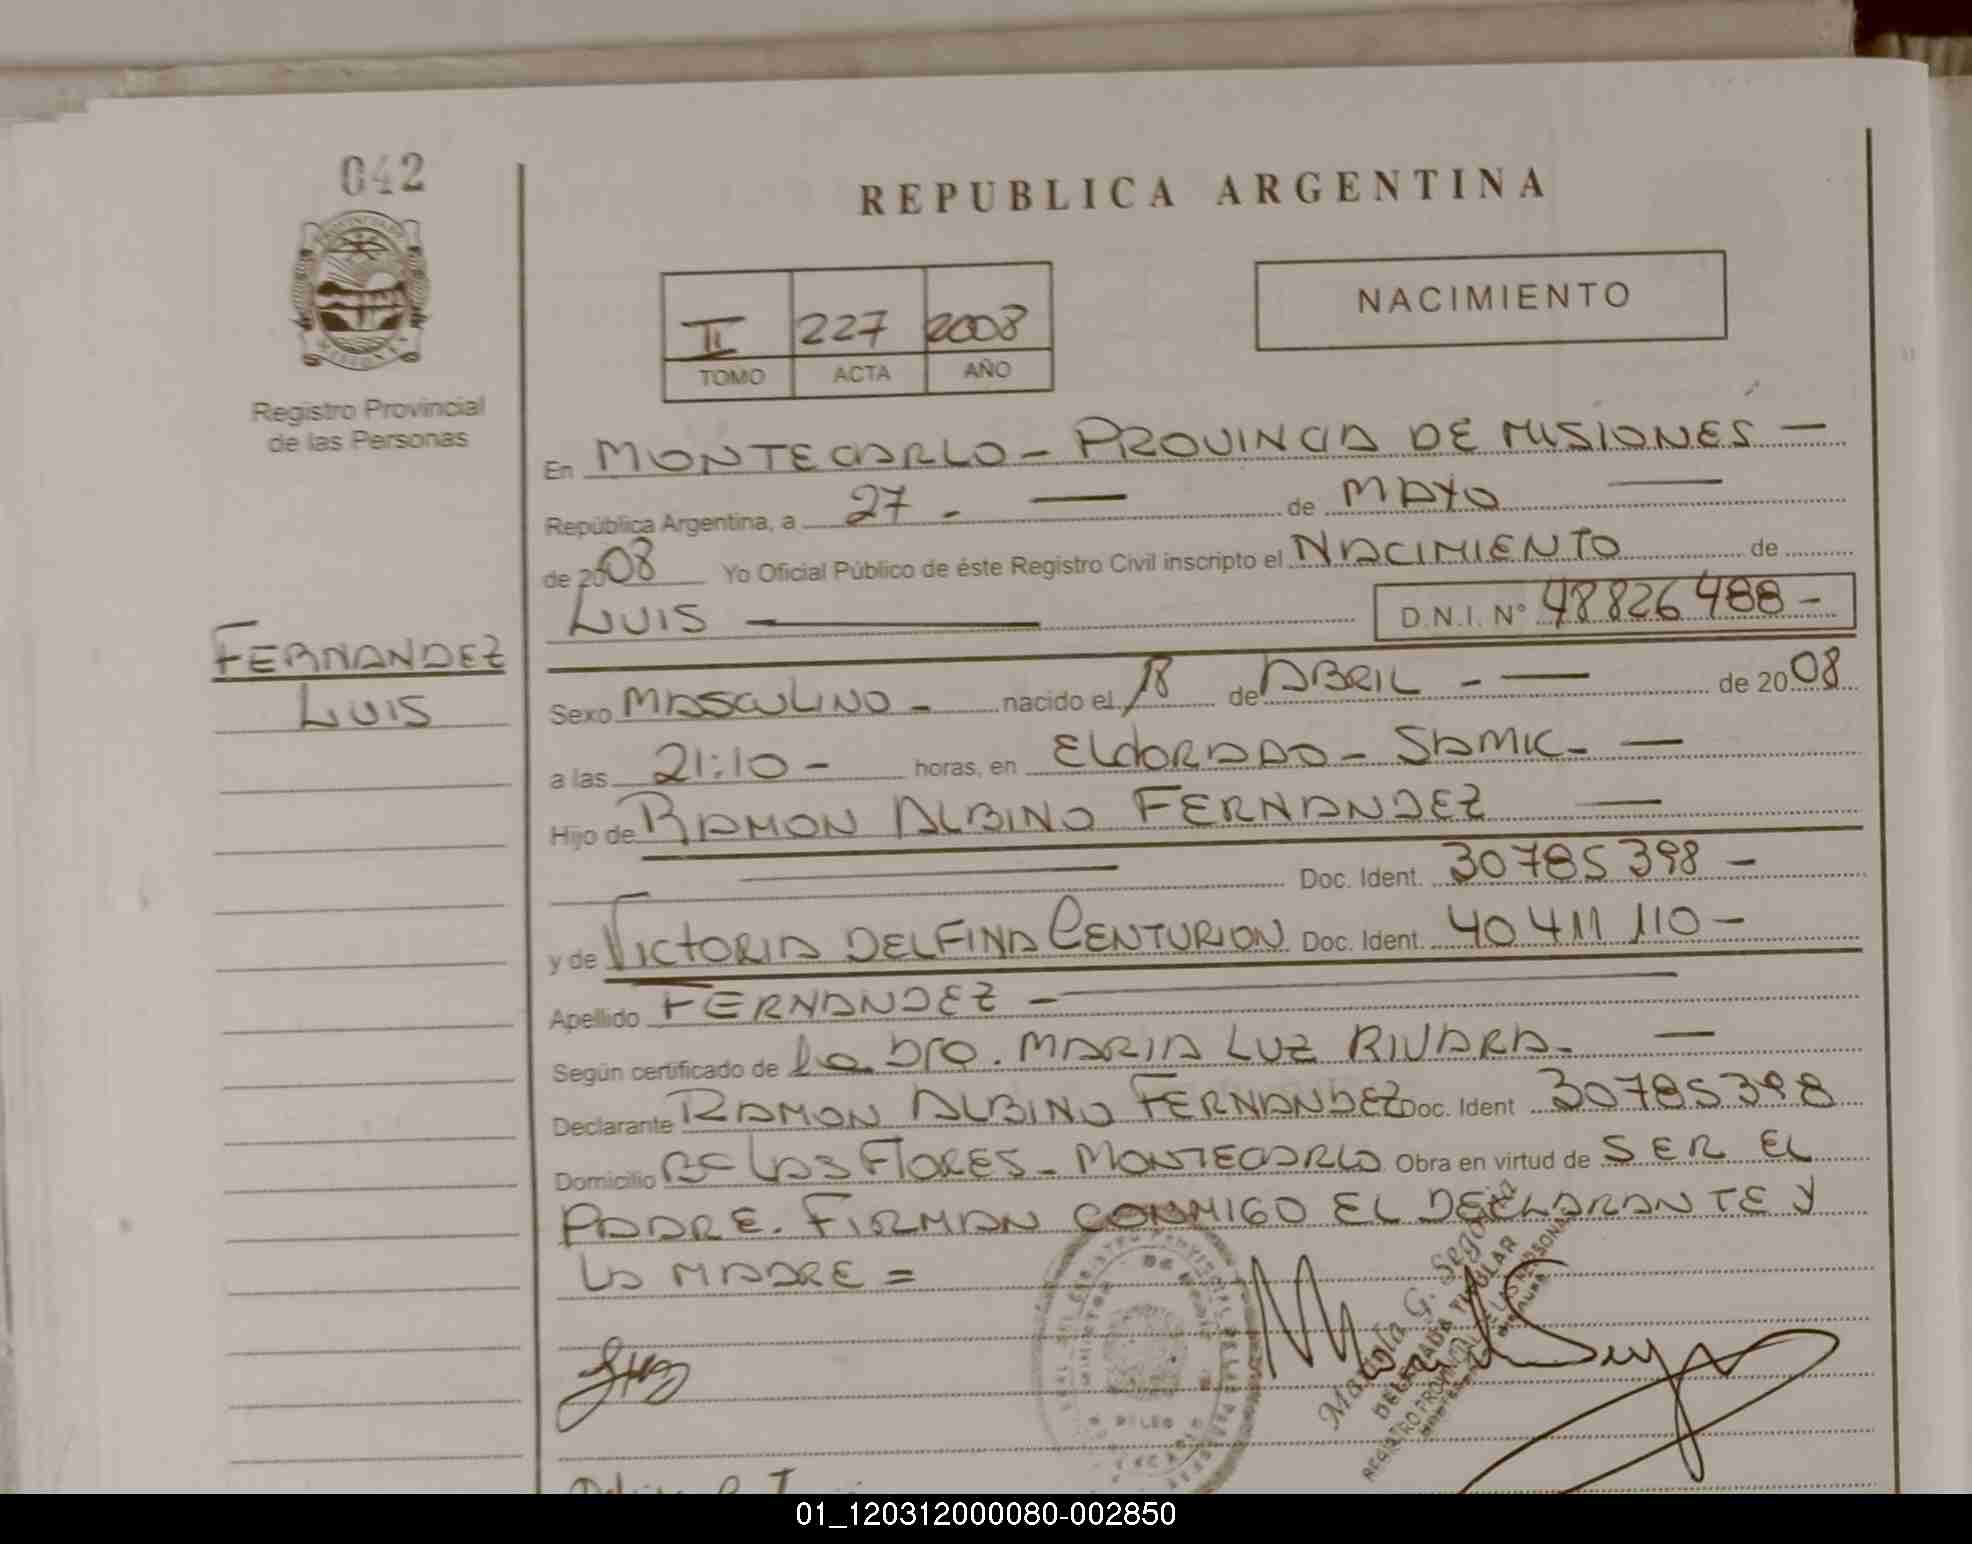 042
REPUBLICA ARGENTINA
NACIMIENTO
II 227 2008
TOMO ACTA AÑO
Registro Provincial
de las Personas
En MONTECARLO - PROVINCIA DE MISIONES -
República Argentina, a 27 - de MAYO
de 2008 Yo Oficial Público de éste Registro Civil inscripto el NACIMIENTO de
LUIS D.N.I. N° 48826488 -
FERNANDEZ
LUIS
Sexo MASCULINO - nacido el 18 de ABRIL - de 2008
a las 21:10 - horas, en ELDORADO - SAMIC -
Hijo de RAMON ALBINO FERNANDEZ
Doc. Ident. 30785398 -
y de VICTORIA DELFINA CENTURION Doc. Ident. 40411110 -
Apellido FERNANDEZ -
Según certificado de la Dra. MARIA LUZ RIVARA -
Declarante RAMON ALBINO FERNANDEZ Doc. Ident 30785398
Domicilio Bº LAS FLORES - MONTECARLO Obra en virtud de SER EL
PADRE. FIRMAN CONMIGO EL DECLARANTE Y
LA MADRE =
G. Segovia
DELEGADA TITULAR
REGISTRO PROVINCIAL DE LAS PERSONAS
01_120312000080-002850